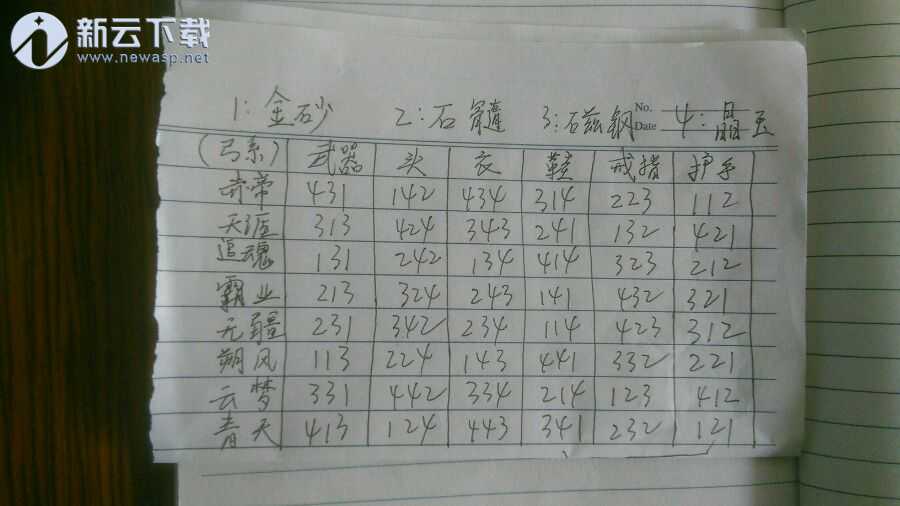 新云下载
www.newasp.net
1:金砂 2:石髓 3:磁钢 4:晶玉
No.
Date
(弓系) 武器 头 衣 鞋 戒指 护手
苛帝 431 142 434 314 223 112
天涯 313 424 343 241 132 421
追魂 131 242 134 414 323 212
霸业 213 324 243 141 432 321
无疆 231 342 234 114 423 312
朔风 113 224 143 441 332 221
云梦 331 442 334 214 123 412
青天 413 124 443 341 232 121